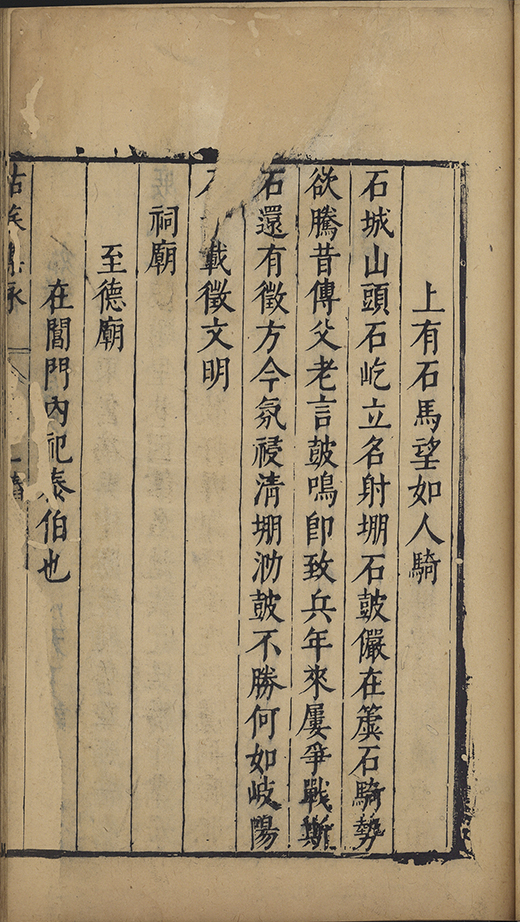 上有石馬望如人騎
石城山頭石屹立名射堋石皷儼在簴石騎勢
欲騰昔傳父老言皷鳴卽致兵年來屢爭戰斯
石還有徵方今氛祲清堋泐皷不勝何如岐陽
載徵文明
祠廟
至德廟
在閶門內祀泰伯也